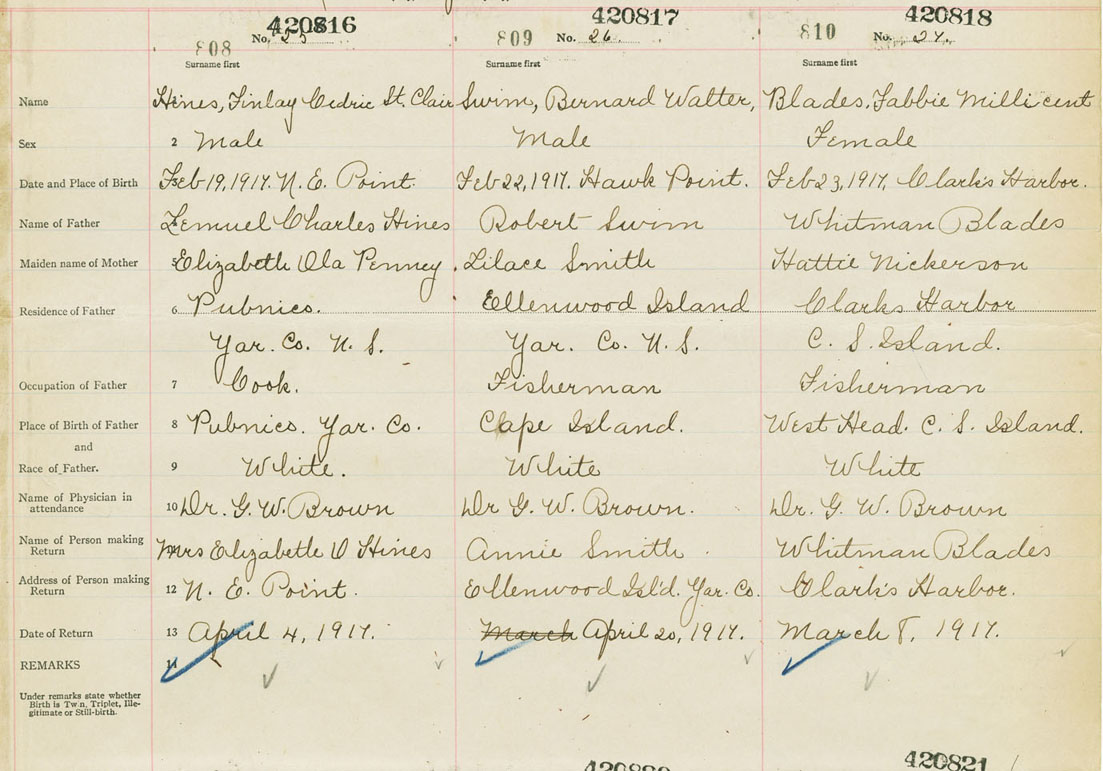 420816 420817 420818
808 No. 25 809 No. 26. 810 No. 27.
Surname first Surname first Surname first
Name Hines, Finlay Cedric St. Clair Swim, Bernard Walter, Blades, Tabbie Millicent
Sex 2 Male Male Female
Date and Place of Birth Feb 19, 1917. N. E. Point. Feb 22, 1917. Hawk Point. Feb 23, 1917, Clark's Harbor.
Name of Father Lemuel Charles Hines Robert Swim Whitman Blades
Maiden name of Mother 5 Elizabeth Ola Penney. Lilace Smith Hattie Nickerson
Residence of Father 6 Pubnico. Ellenwood Island Clarks Harbor
Yar. Co. N. S. Yar. Co. N. S. C. S. Island.
Occupation of Father 7 Cook. Fisherman Fisherman
Place of Birth of Father 8 Pubnico. Yar. Co. Cape Island. West Head. C. S. Island.
and
Race of Father. 9 White. White White
Name of Physician in attendance 10 Dr. G. W. Brown Dr G. W. Brown. Dr. G. W. Brown
Name of Person making Return Mrs Elizabeth O Hines Annie Smith Whitman Blades
Address of Person making Return 12 N. E. Point. Ellenwood Isl'd. Yar. Co. Clark's Harbor.
Date of Return 13 April 4, 1917. March April 20, 1917. March 8, 1917.
REMARKS 14
Under remarks state whether
Birth is Twin, Triplet, Ille-
gitimate or Still-birth.
420821